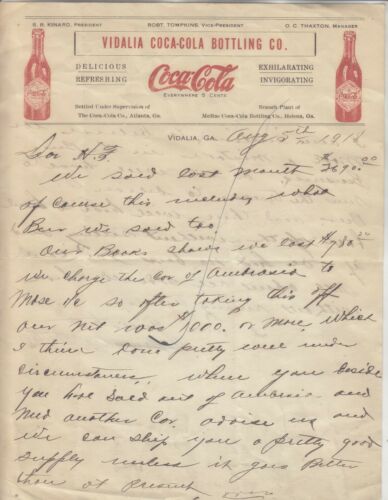 S. B. KINARD, PRESIDENT ROBT. TOMPKINS, VICE-PRESIDENT O. C. THAXTON, MANAGER
VIDALIA COCA-COLA BOTTLING CO.
DELICIOUS
REFRESHING
Coca-Cola
EVERYWHERE 5 CENTS
EXHILARATING
INVIGORATING
Bottled Under Supervision of
The Coca-Cola Co., Atlanta, Ga.
Branch Plant of
McRae Coca-Cola Bottling Co., Helena, Ga.
VIDALIA, GA. Aug 5th 1918
We sold last month
of course this includes what
Beer we sold too
Our Books shows we lost
We charge the Car of Ambrosia to
so after taking this off
our net was $1000. or more, which
I think done pretty well under
circumstances, when you
you have sold out of Ambrosia and
need another Car. advise us and
we can ship you a pretty good
supply unless it goes better
than at present